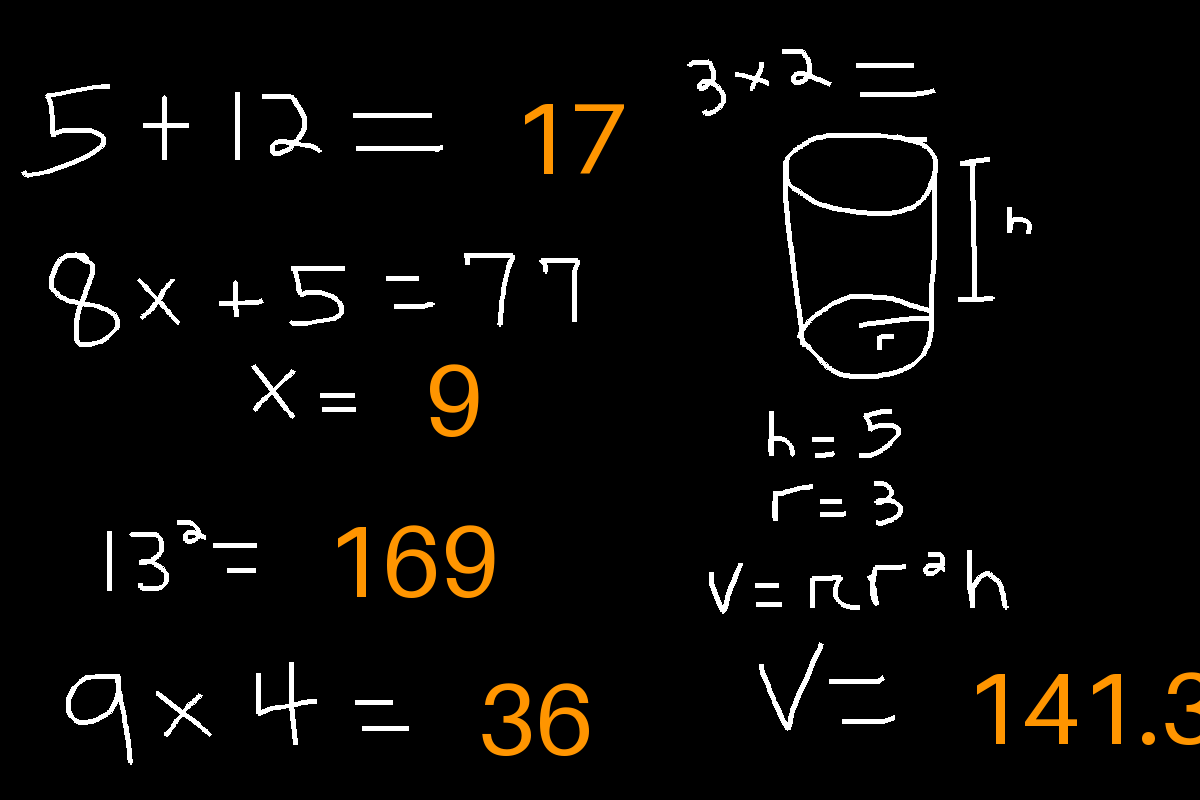 5 + 12 = 17
8x + 5 = 77
x = 9
13² = 169
9 x 4 = 36
3 x 2 =
h
r
h = 5
r = 3
V = πr²h
V = 141.3